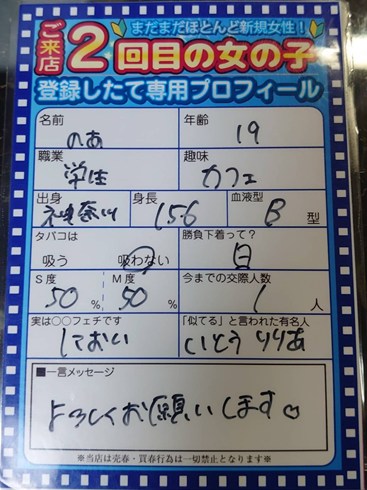 まだまだほとんど新規女性！
ご来店2回目の女の子
登録したて専用プロフィール
名前 のあ 年齢 19
職業 学生 趣味 カフェ
出身 神奈川 身長 156 血液型 B型
タバコは 吸う 吸わない 勝負下着って？ 白
S度 50% M度 50% 今までの交際人数 1人
実は○○フェチです しておい 「似てる」と言われた有名人 いとうりりあ
■一言メッセージ
よろしくお願いします♡
※当店は売春・買春行為は一切禁止となります※